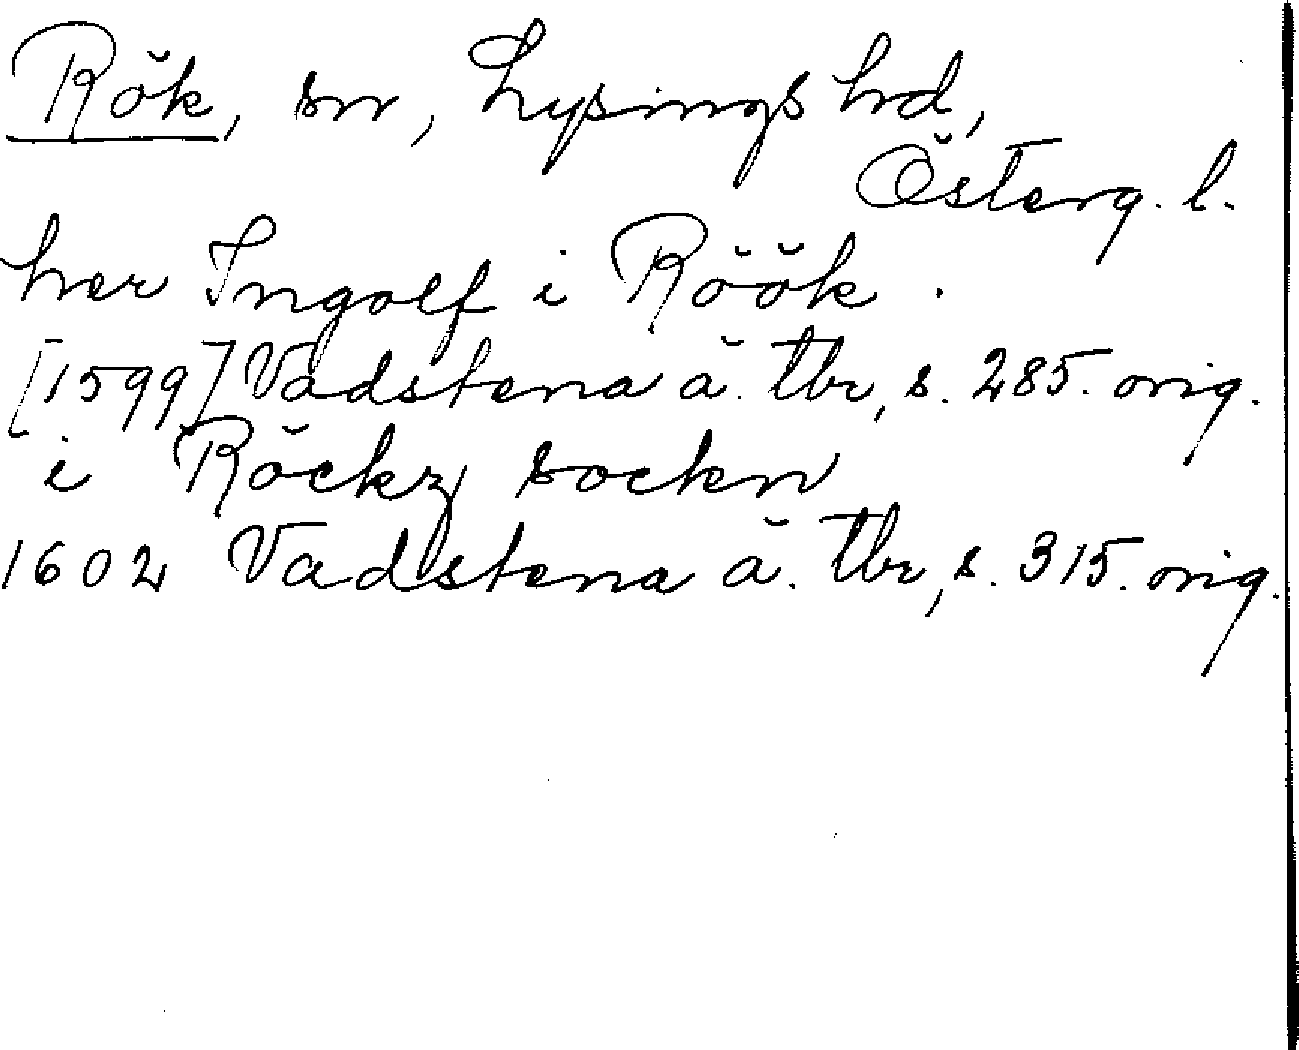 Rök, sn, Lysings hd,
Österg. l.
her Ingolf i Röök.
[1599] Vadstena ä. tbr, s. 285. orig.
i Röckz sockn
1602 Vadstena ä. tbr, s. 315. orig.